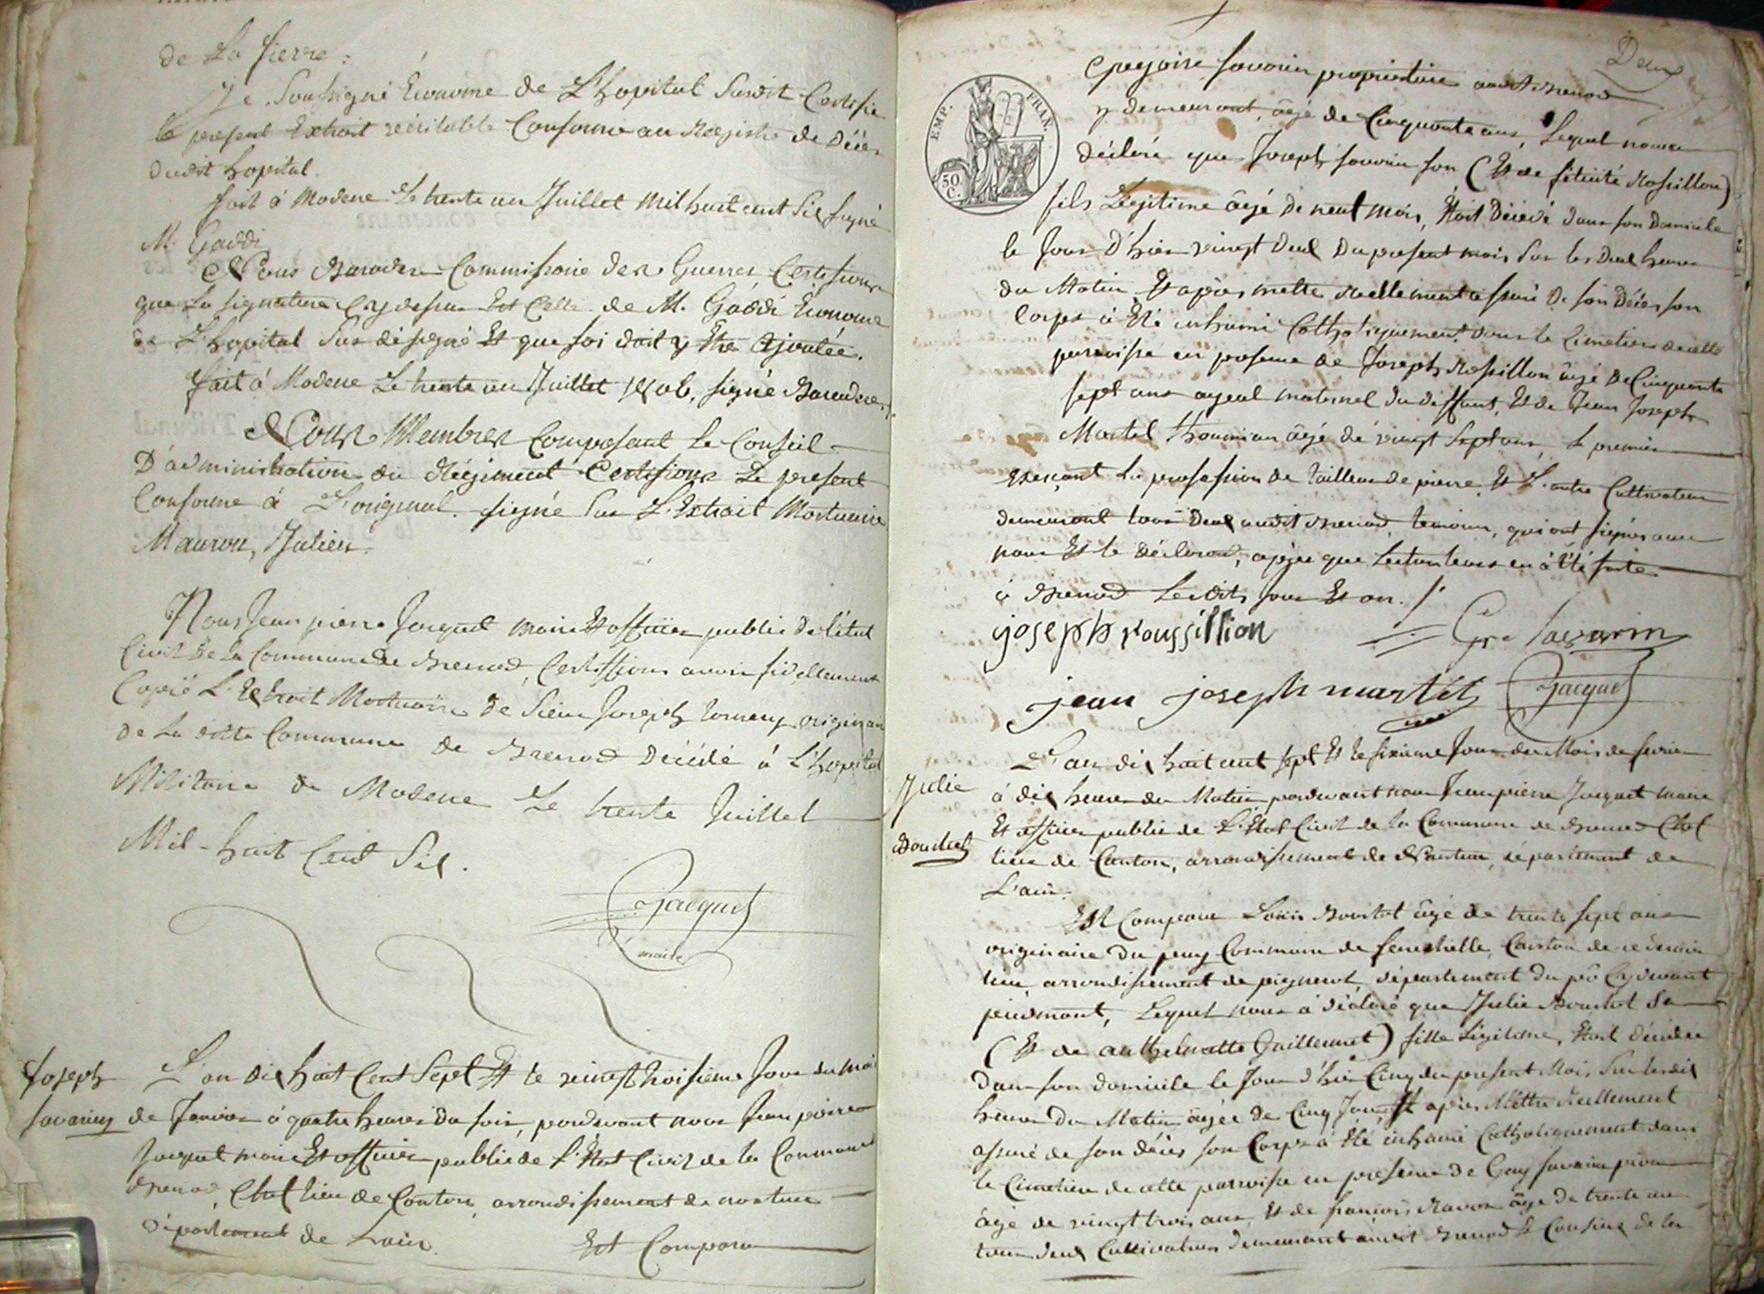 de La fievre.
Je Soussigné Econome de L'hopital Susdit Certifie
le present Extrait véritable Conforme au Registre de Décès
dudit hopital.
fait à Modene Le trente un Juillet mil huit cent Six signé
M. Gaddi
Nous Commissaire des Guerres, Certifions
que La signature Cy dessus Est Celle de M. Gaddi Econome
de L'hopital Sus désigné Et que foi doit y Etre Ajoutée.
fait à Modene Le trente un Juillet 1806, signé
Nous Membres Composant Le Conseil
D'administration du Régiment Certifions Le present
Conforme à L'original. signé Sur L'Extrait Mortuaire
Mauron, Julien.
Nous Jean pierre Jacquet maire Et officier public de l'état
Civil De La Commune de Brenod, Certiffions avoir fidellement
Copié L'Extrait Mortuaire de Sieur Joseph originaire
De La ditte Commune de Brenod Décédé à L'hopital
Militaire de Modene Le trente Juillet
Mil-huit Cent Six.
Jacquet
maire
Joseph
Savarin
L'an dix huit Cent Sept Et le vingt troisieme Jour du moi
de Janvier à quatre heures du soir, pardevant nous Jean pierre
Jacquet maire Et officier public de L'Etat Civil de la Commune
Brenod, Chef lieu de Canton, arrondissement de nantua
Département de L'ain.
Est Comparu
Deux
EMP. FRAN.
50 C.
Gregoire Savarin propriétaire audit Brenod
y demeurant, âgé de Cinquante ans, Lequel nous a
déclaré que Joseph Savarin son (Et de félicité Rossillon)
fils Légitime âgé De neuf mois, Etoit Décédé dans son Domicile
le Jour D'hier vingt Deux Du present mois Sur les Deux heures
du Matin, Et après m'etre réellement assuré De son Décès son
Corps à Eté inhumé Catholiquement dans le Cimetiere de cette
paroisse en presence de Joseph Rossillon âgé De Cinquante
sept ans ayeul maternel du deffunt, Et de Jean Joseph
Martel âgé de vingt Sept ans, Le premier
Exerçant La profession de Tailleur de pierre, Et L'autre Cultivateur
demeurant tous Deux audit Brenod, temoins, qui ont signés avec
nous Et le déclarant, après que Lecture leur en à été faite
à Brenod Lesdits Jour Et an.
joseph roussillion
Gre Savarin
jean joseph martel
Jacquet
Julie
Bouchet
L'an dix huit cent sept Et le sixieme Jour du Mois de fevrier
à dix heures du Matin pardevant nous Jean pierre Jacquet maire
Et officier public de L'Etat Civil de la Commune de Brenod Chef
lieu de Canton, arrondissement de Nantua, département de
L'ain.
Est Comparu Louis âgé de trente sept ans
originaire du Commune de fenestrelle, Canton de ce dernier
lieu, arrondissement de pignerol, département du pô Cydevant
piedmont, Lequel nous à déclaré que Julie Sa
(Et de Guillermet) fille Légitime, Etoit décédée
Dans son domicile le Jour d'hier Cinq du present Mois Sur les dix
heures Du Matin âgée De Cinq Jours Et après M'être réellement
assuré de son décès son Corps à Eté inhumé Catholiquement dans
le Cimetiere de cette paroisse en presence de Guy Savarin
âgé de vingt trois ans, Et de françois Ravor âgé De trente un
tous deux Cultivateurs demeurant audit Brenod Et Cousins de la